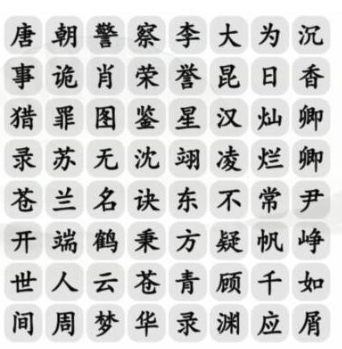 唐朝警察李大为沉
事诡肖荣誉昆日香
猎罪图鉴星汉灿卿
录苏无沈翊凌烂卿
苍兰名诀东不常尹
开端鹤秉方疑帆峥
世人云苍青顾千如
间周梦华录渊应屑